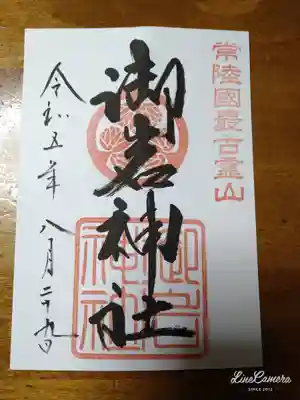 常陸國最古霊山
御岩神社
御岩神社
令和五年八月二十九日
LineCamera
SINCE 2012